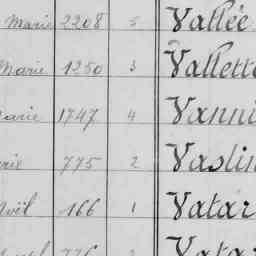 Marie 2208 5 Vallée
Marie 1250 3 Vallett
arie 1747 4 Vanni
rie 775 2 Vaslin
oël 166 1 Vatar
776 2 Vata